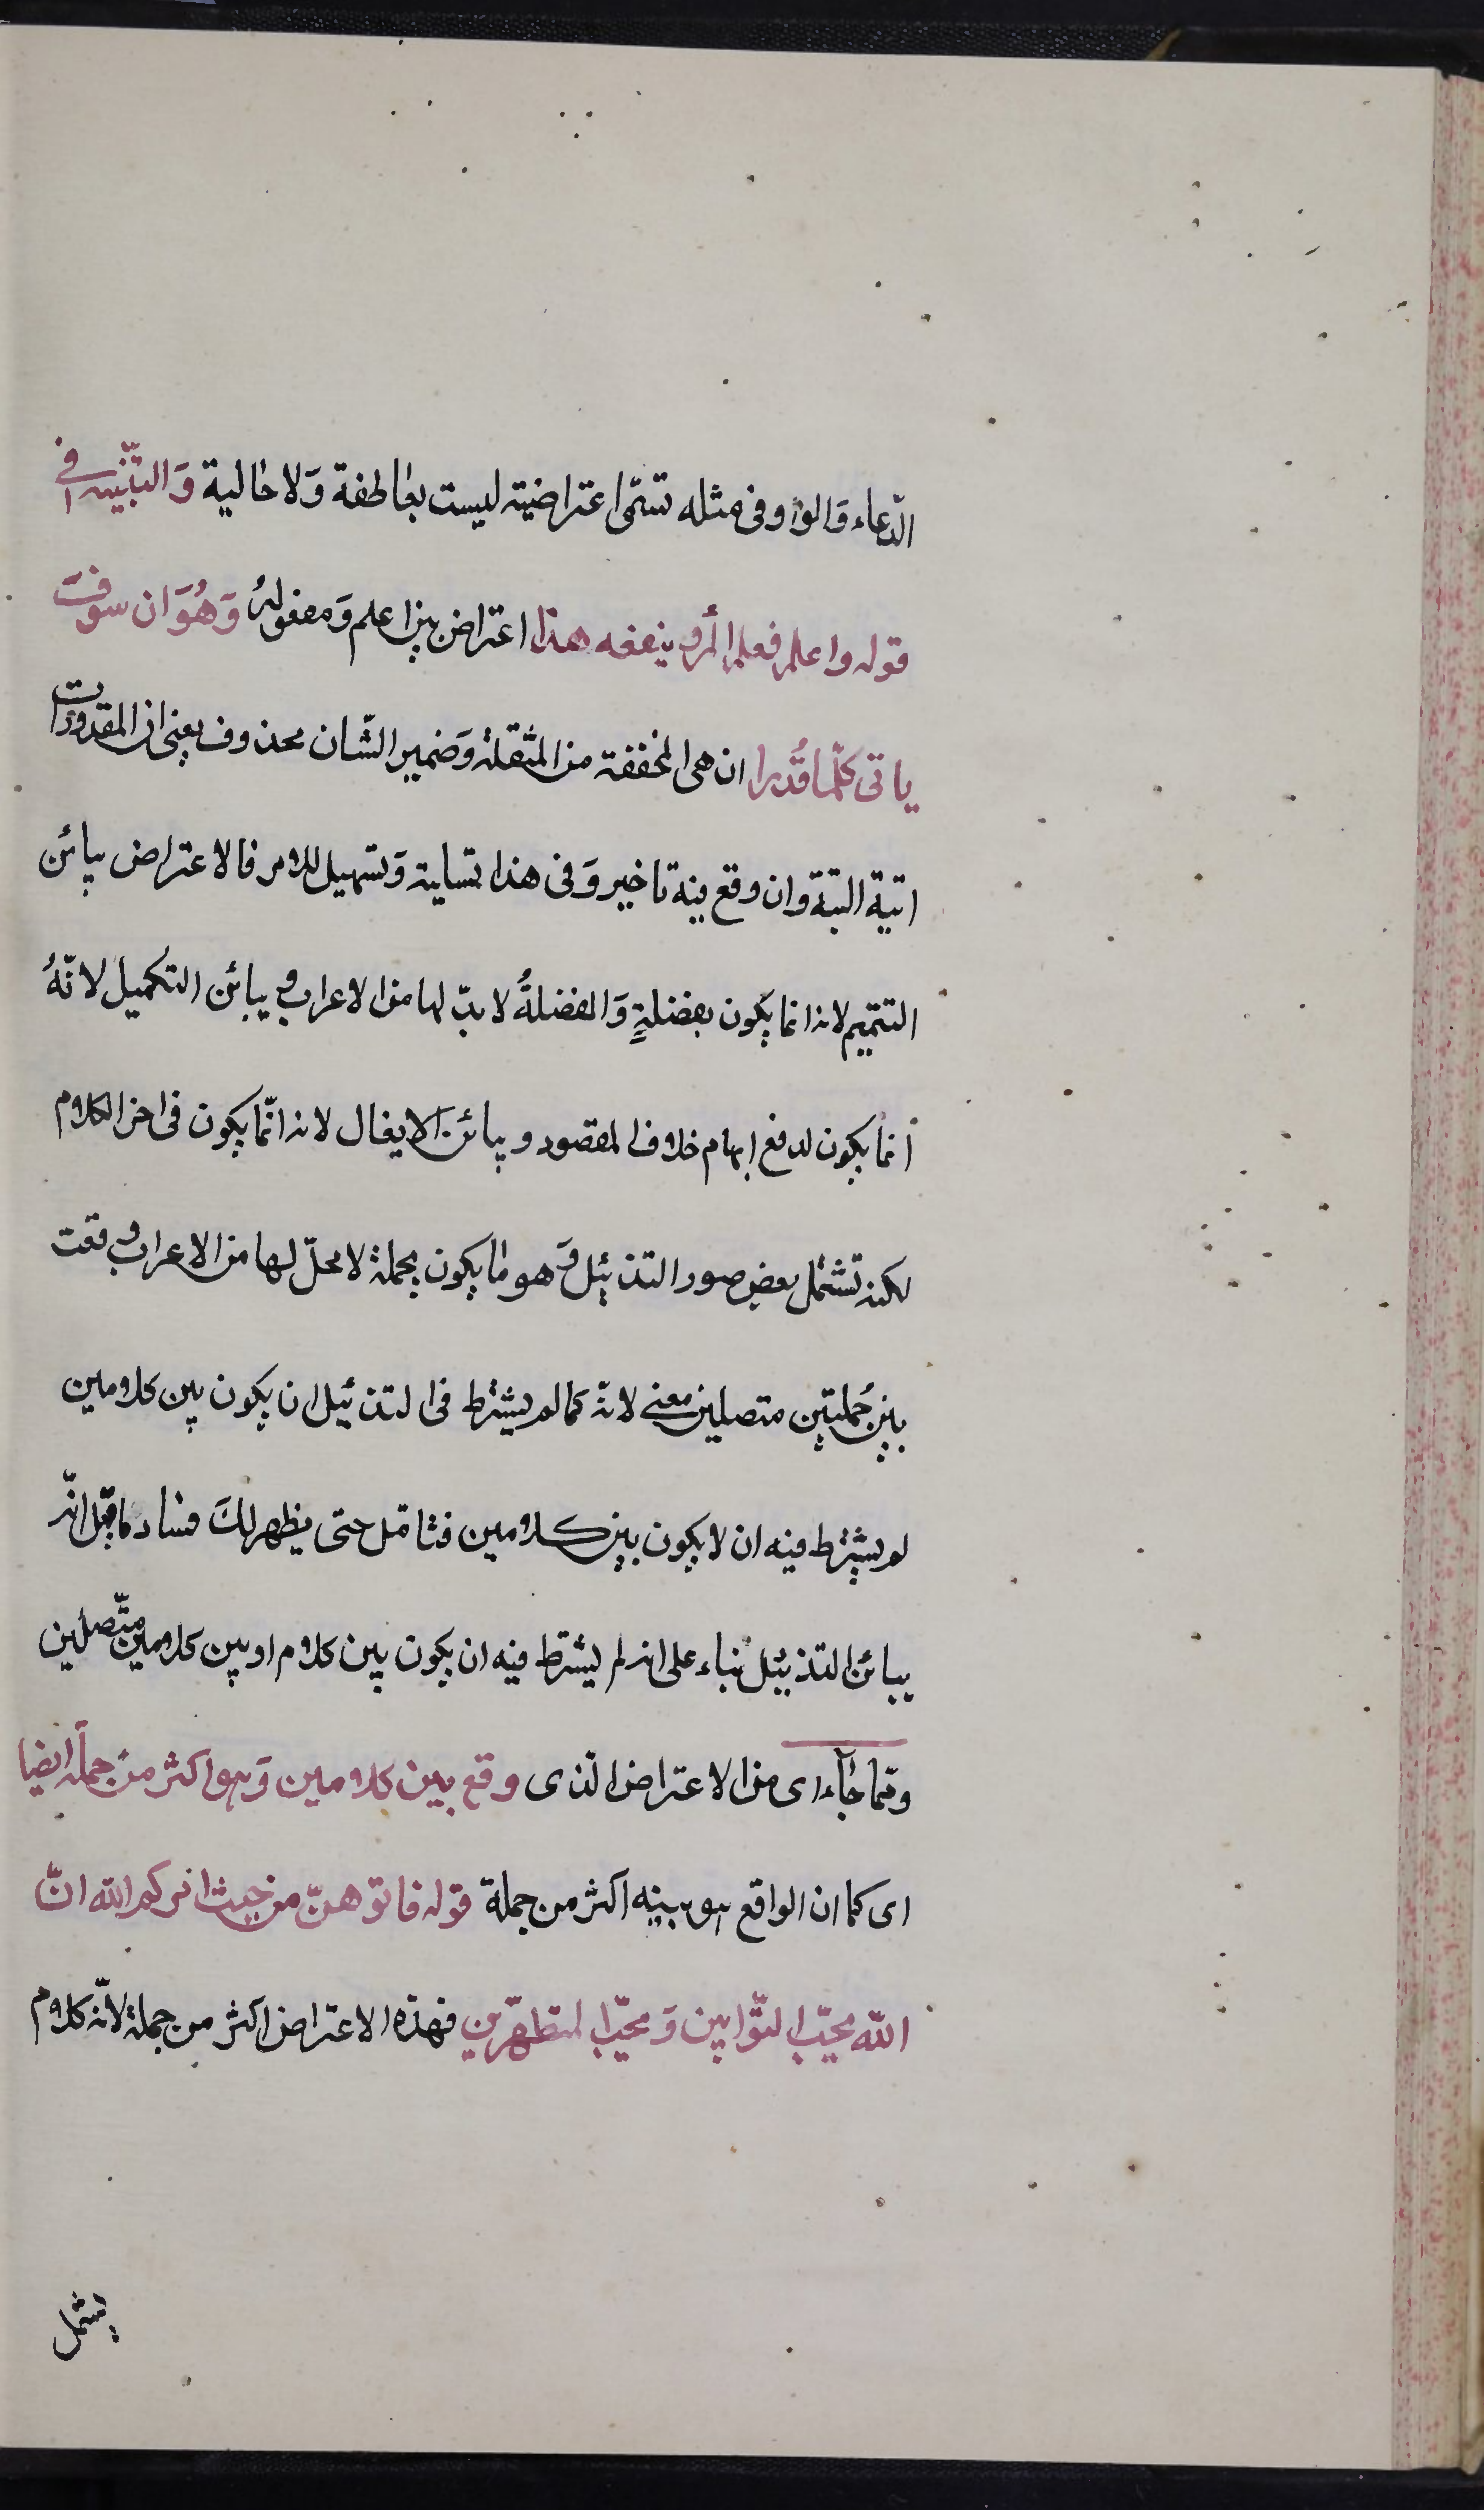 الدّعاء وَالواو فى مثله تسمّى اعتراضية ليست بعاطفة وَلا حالية وَالتّنبيه فى
قوله واعلم فعلم المرء ينفعه هذا اعتراض بين اعلم وَمفعوله وَهُوَ ان سوفَ
ياتى كلّما قُدرا ان هى المخففة من المثقلة وَضمير الشّان محذوف يعنى ان المقدورات
اتية البتة وان وقع فيه تاخير وَفى هذا تسلية وَتسهيل للامر فالاعتراض يباين
التتميم لانه انما يكون بفضلةٍ وَالفضلةُ لا بدّ لها من الاعراب و يباين التكميل لانّهُ
انما يكون لدفع ايهام خلاف المقصود و يباين الايغال لانه انّما يكون فى اخر الكلام
لكنه تشتمل بعض صور التذييل وَهو ما يكون بجملة لا محلّ لها من الاعراب وقعت
بين جُملتين متصلين معنى لانّه كما لم يشترط فى التذييل ان يكون بين كلامين
لم يشترط فيه ان لا يكون بين كلامين فتامّل حتى يظهر لكَ فساد ما قيل انّه
يباين التذييل بناء على انه لم يشترط فيه ان يكون بين كلام او بين كلامين متّصلين
وممّا جاء اى من الاعتراض الّذى وقع بين كلامين وَهو اكثر من جملة ايضا
اى كما ان الواقع هو بينه اكثر من جملة قوله فاتوهنّ من حيث امركم الله انّ
الله يحبّ التّوابين وَيحبّ المتطهّرين فهذه الاعتراض اكثر من جملة لانّه كلام
يشتمل